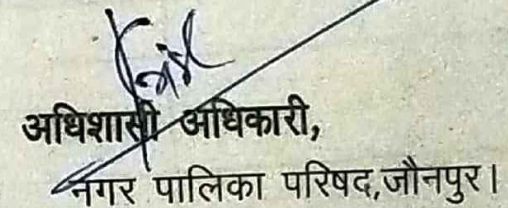 अधिशासी अधिकारी,
नगर पालिका परिषद,जौनपुर।